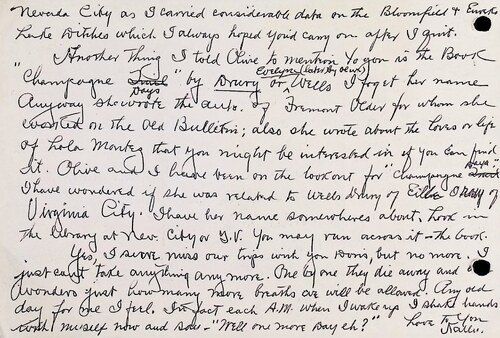 Nevada City as I carried considerable data on the Bloomfield & Eureka
Lake Ditches which I always hoped you'd carry on after I quit.
Another thing I told Olive to mention to you is the Book
"Champagne Days" by Drury or Wells I forget her name
Evelyn
Anyway she wrote the auto. of Fremont Older for whom she
worked on the Old Bulletin; also she wrote about the loves or life
of Lola Montez that you might be interested in if you can find
it. Olive and I have been on the lookout for "Champagne Days."
I have wondered if she was related to Wells Drury of
Virginia City. I have her name somewheres about. Look in
the library at Nev. City or G.V. You may run across it - the book.
Yes, I sure miss our trips with you Doris, but no more. I
just can't take anything any more. One by one they die away and
wonders just how many more breaths we will be allowed. Any old
day for me I feel. In fact each A.M. when I wake up I shake hands
with myself now and say - "Well one more day eh?"
Love to You